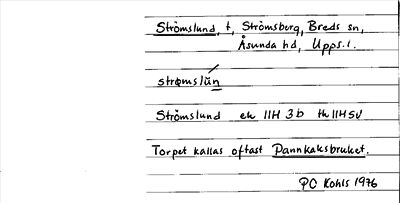 Strömslund, t, Strömsborg, Breds sn,
Åsunda hd, Upps.l.
strømslūn
Strömslund ek 11H 3b th 11H SV
Torpet kallas oftast Pannkaksbruket.
PC Kohls 1976